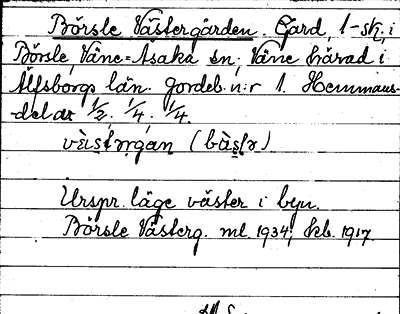 Börsle Västergården. Gård, 1-sk, i
Börsle, Väne-Åsaka sn, Väne härad i
Älfsborgs län. Jordeb. n:r 1. Hemmans-
delar 1/2. 1/4. 1/4.
vàs̩tərgán (bàs̩lə)
Urspr. läge väster i byn.
Börsle Västerg. ml. 1934, kb. 1917.